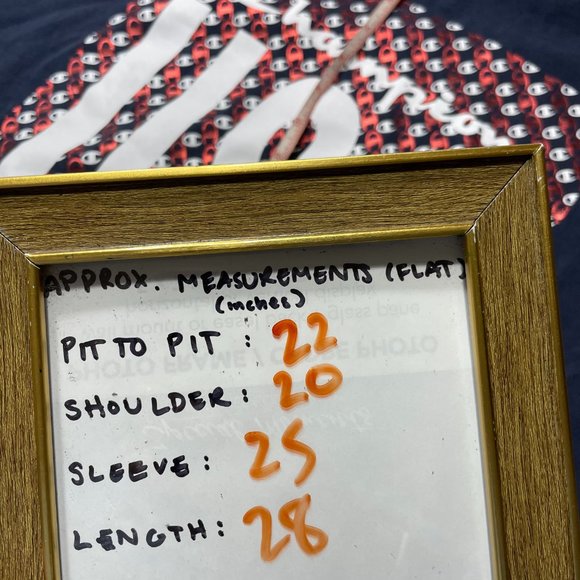 Champion
APPROX. MEASUREMENTS (FLAT)
(inches)
PIT TO PIT : 22
SHOULDER : 20
SLEEVE : 25
LENGTH : 28